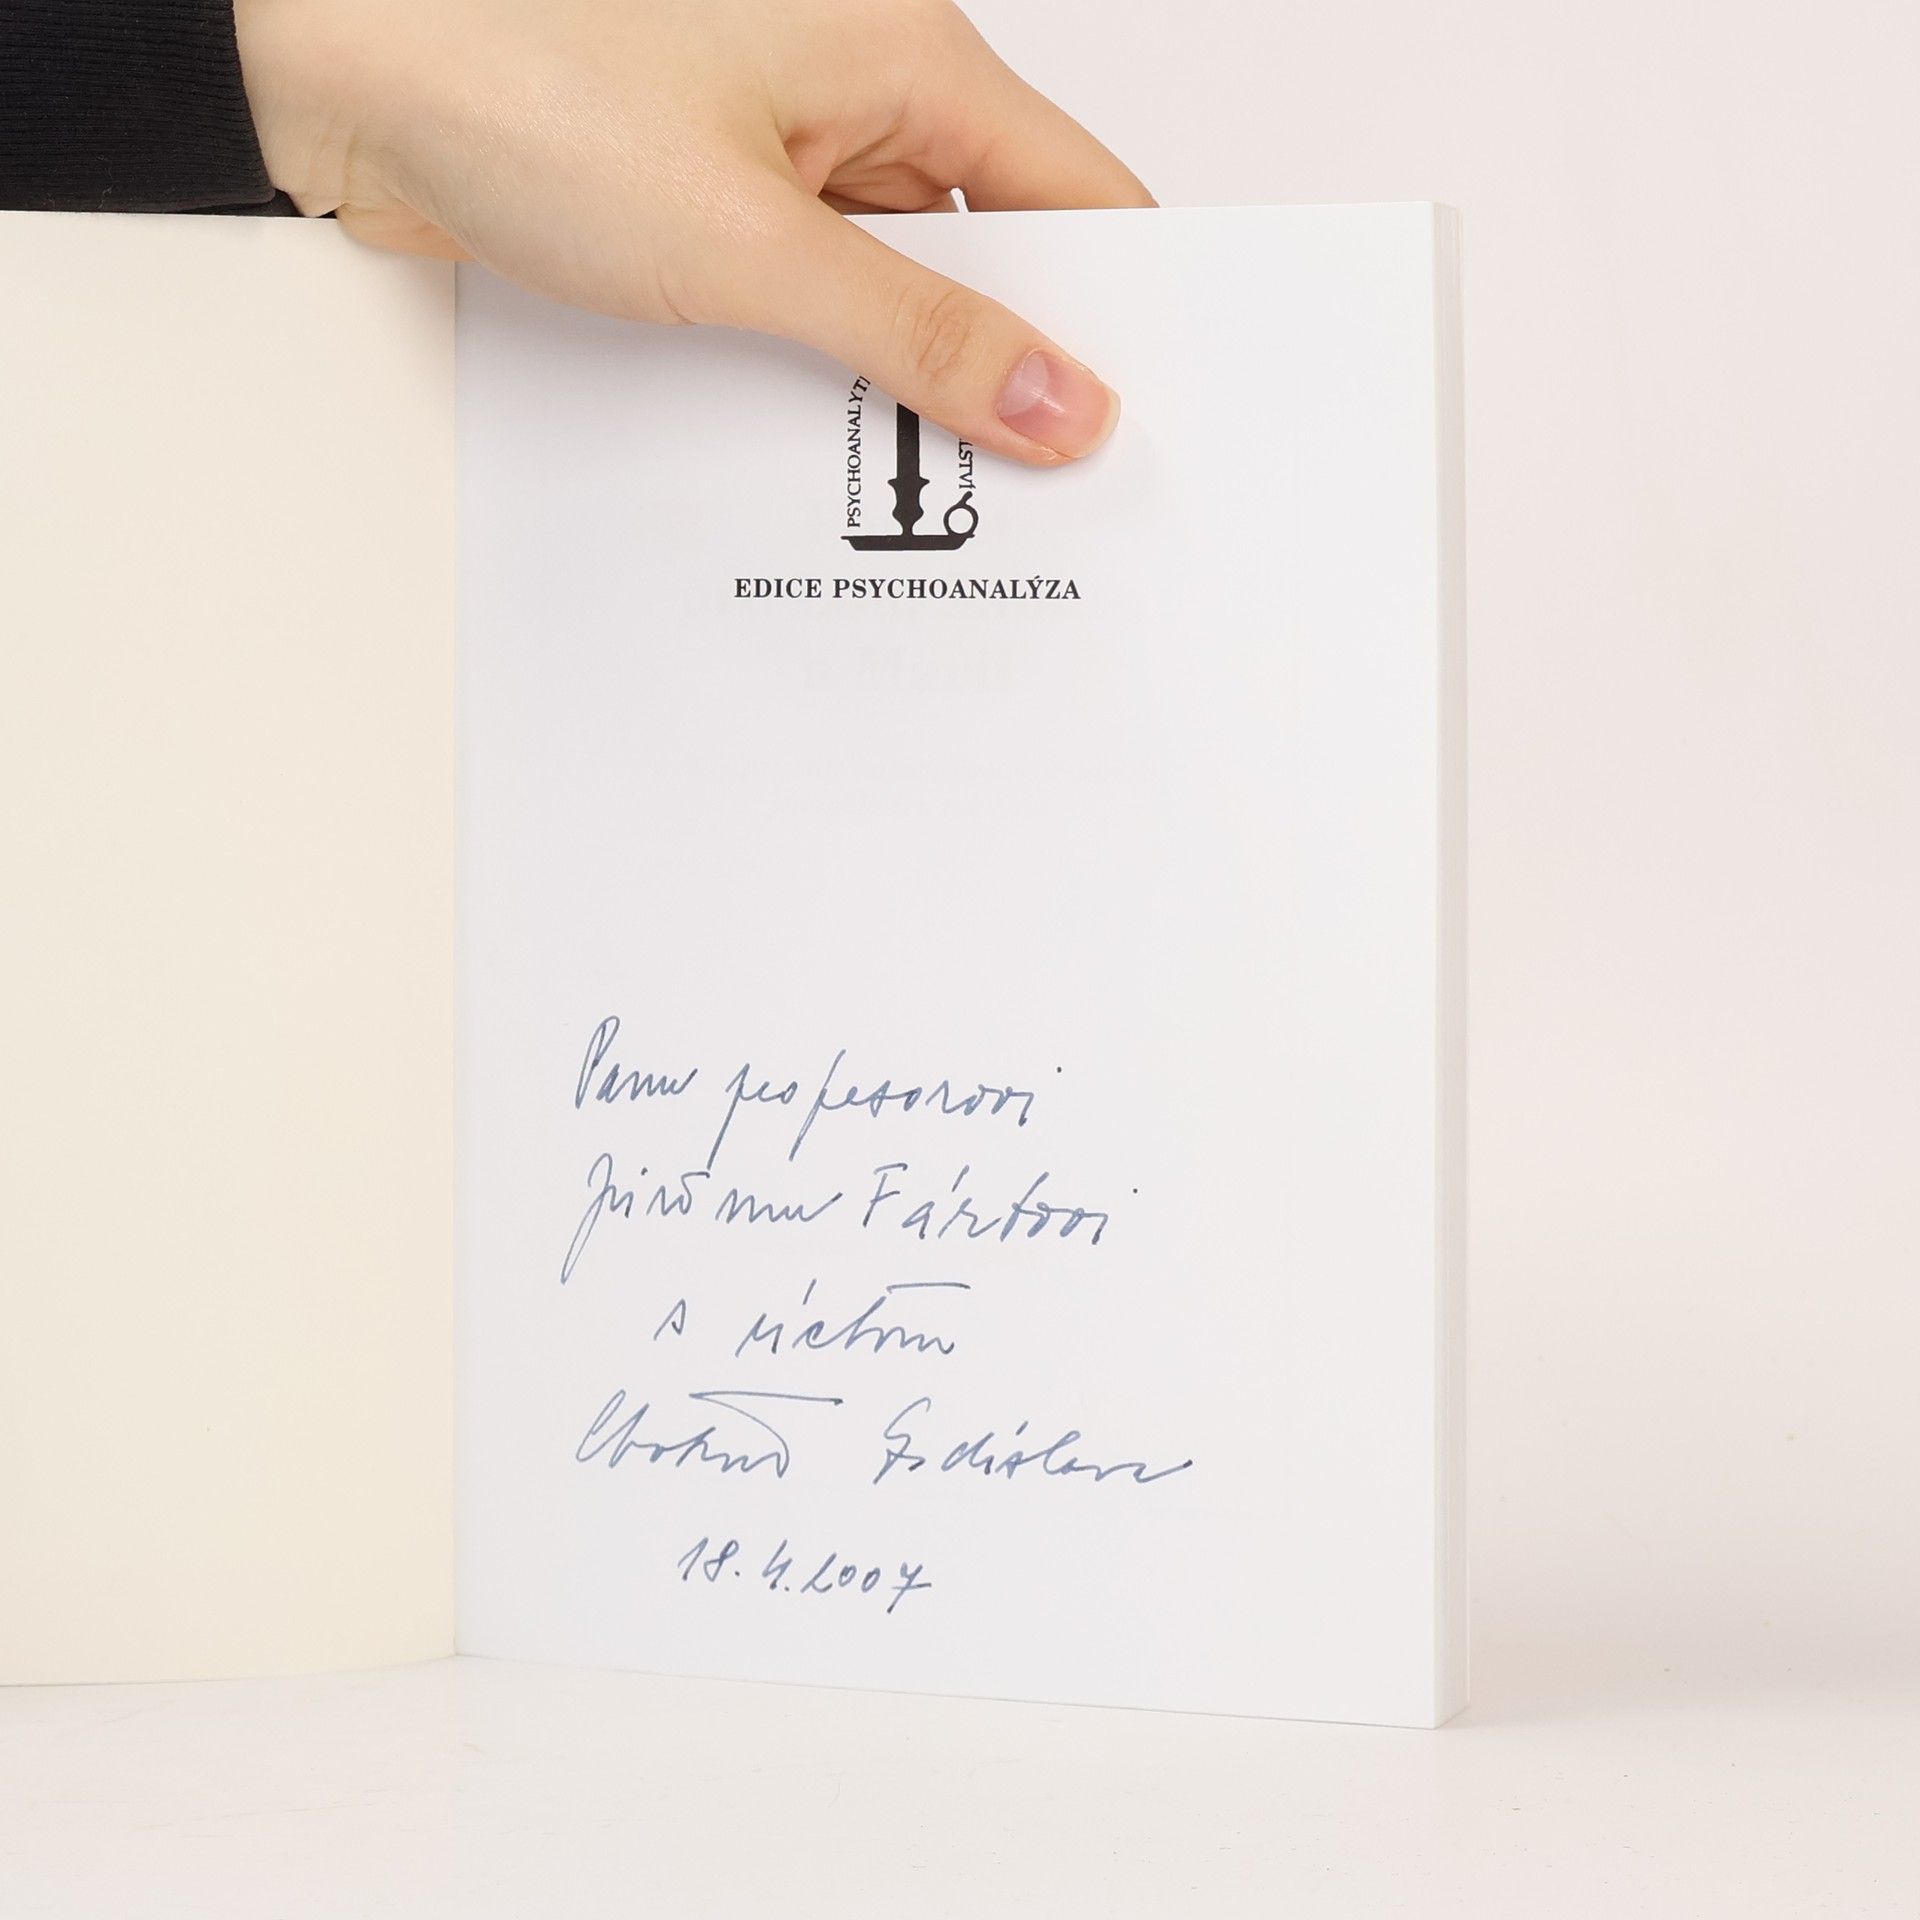 PSYCHOANALYTI
LSTVÍ
EDICE PSYCHOANALÝZA
Panu profesorovi
Jiřímu Fártovi
s úctou
Zdislava
18. 4. 2007